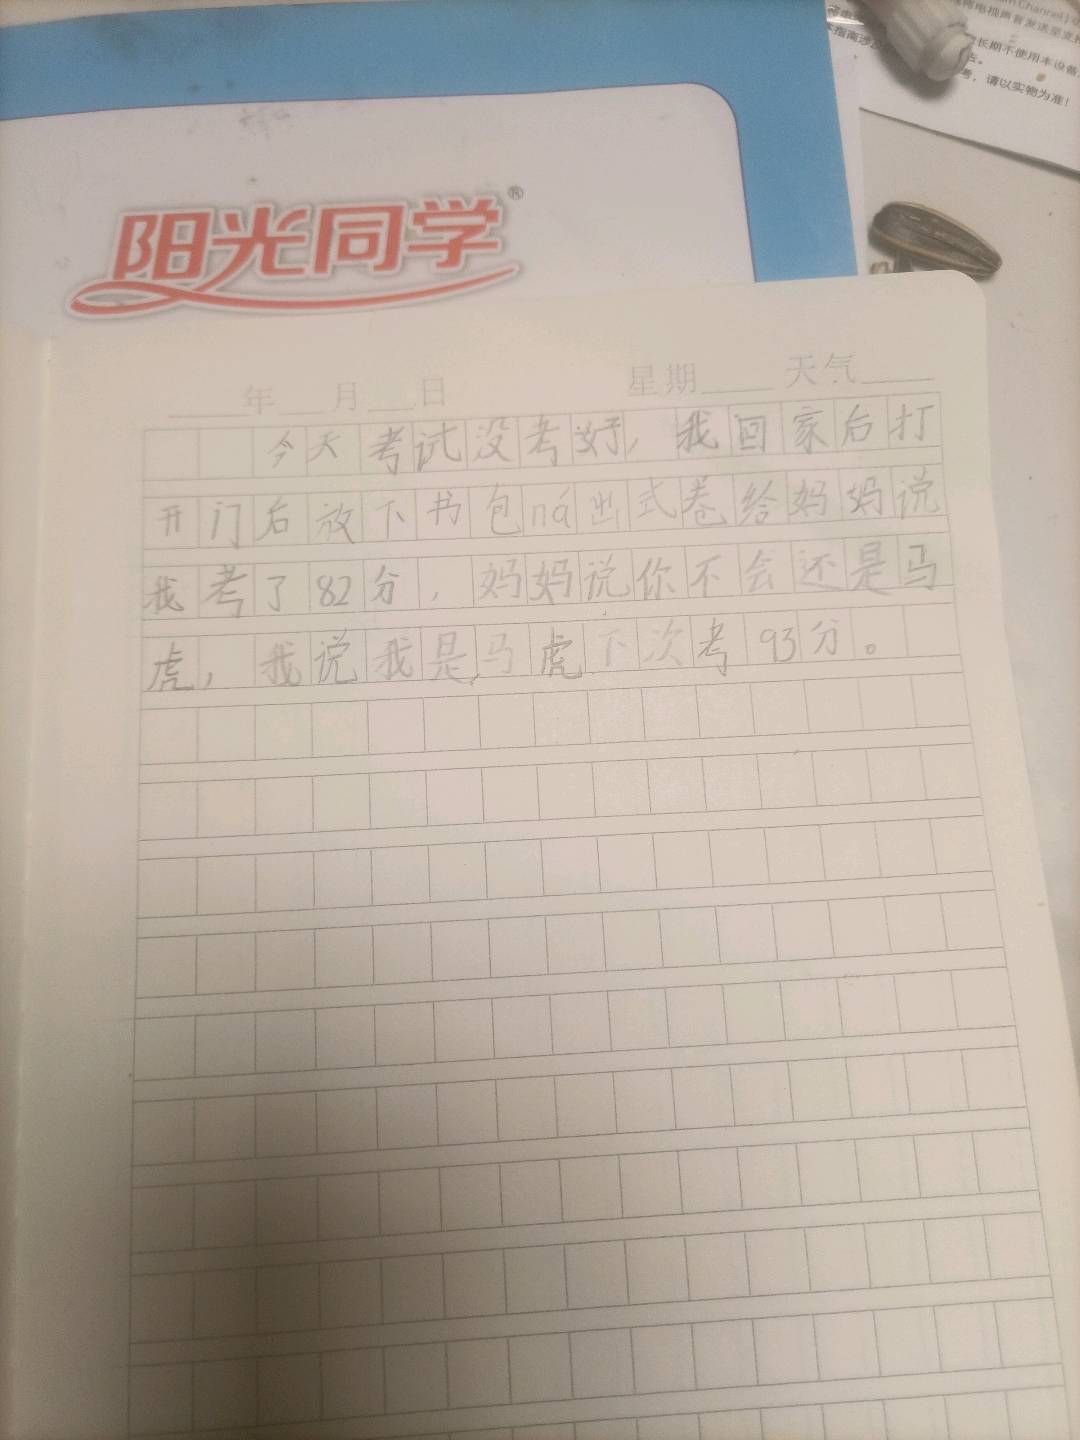 阳光同学®
长期不使用本设备,
考,请以实物为准!
年 月 日 星期 天气
今天考试没考好,我回家后打
开门后放下书包ná出式卷给妈妈说
我考了82分,妈妈说你不会还是马
虎,我说我是马虎下次考93分。